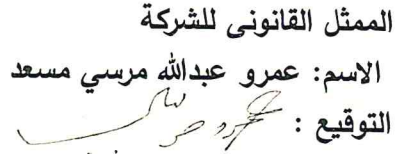 الممثل القانونى للشركة
الاسم: عمرو عبدالله مرسي مسعد
التوقيع :